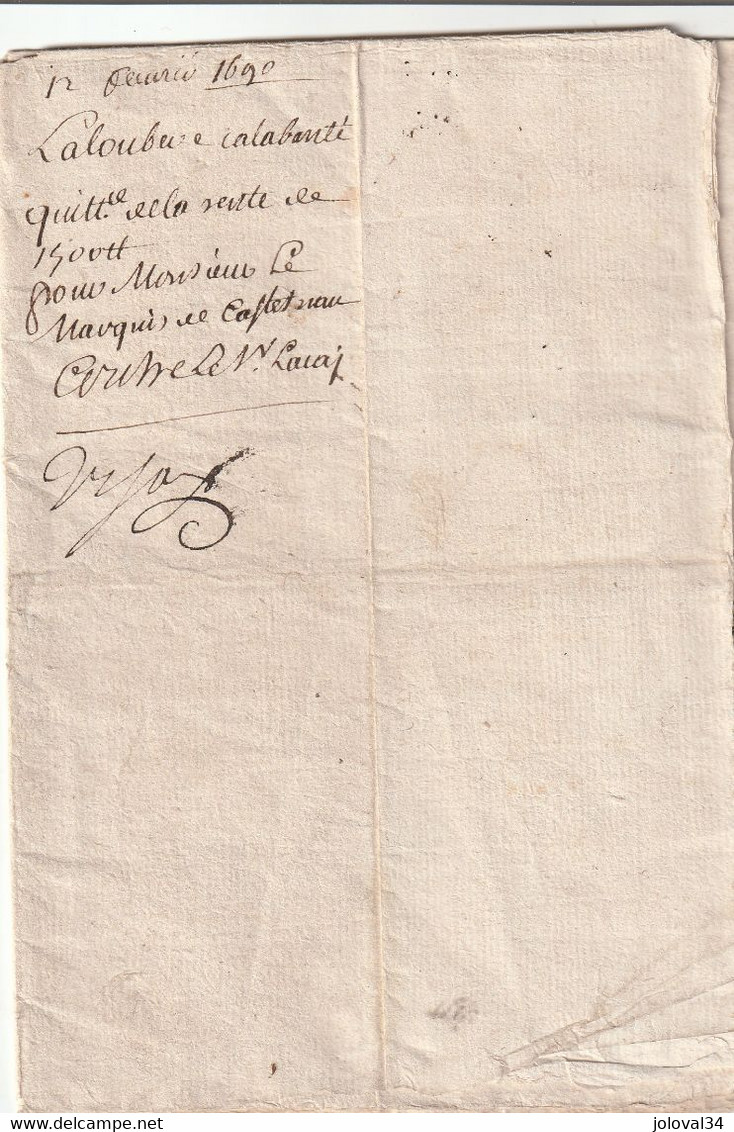 12 feurié 1690
Laloubere calabanté
quitt.ce de la rente de
1500tt
pour Monsieur Le
Marquis de Castelnau
Contre Le Sr. Lacaj
delcampe.net
joloval34